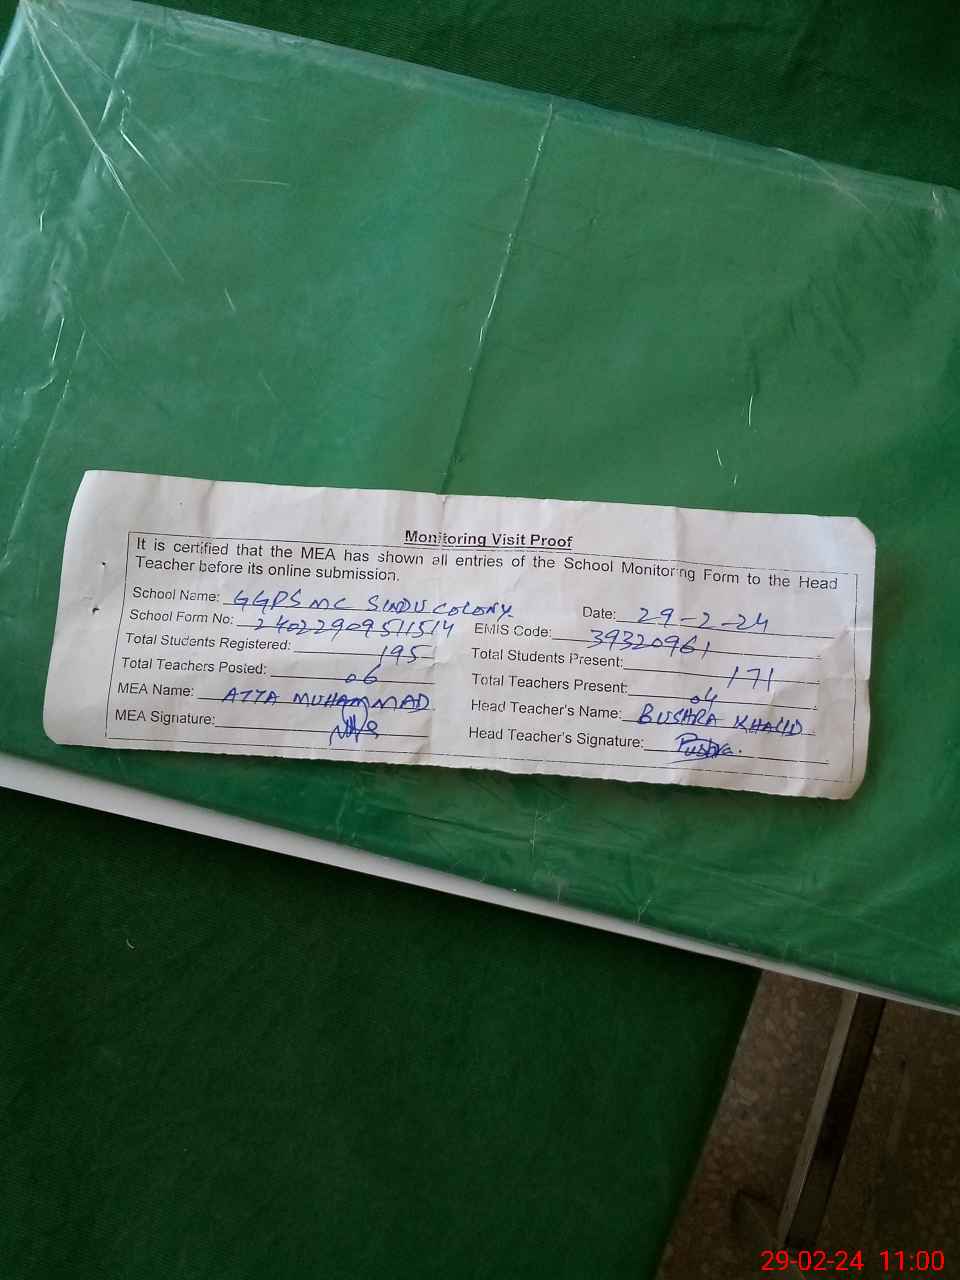 Monitoring Visit Proof
It is certified that the MEA has shown all entries of the School Monitoring Form to the Head
Teacher before its online submission.
School Name: GGPS MC SINDU COLONY. Date: 29-2-24
School Form No: 24022909511514 EMIS Code: 39320961
Total Students Registered: 195 Total Students Present: 171
Total Teachers Posted: 06 Total Teachers Present: 04
MEA Name: ATTA MUHAMMAD Head Teacher's Name: BUSHRA KHALID
MEA Signature: Head Teacher's Signature:
29-02-24 11:00